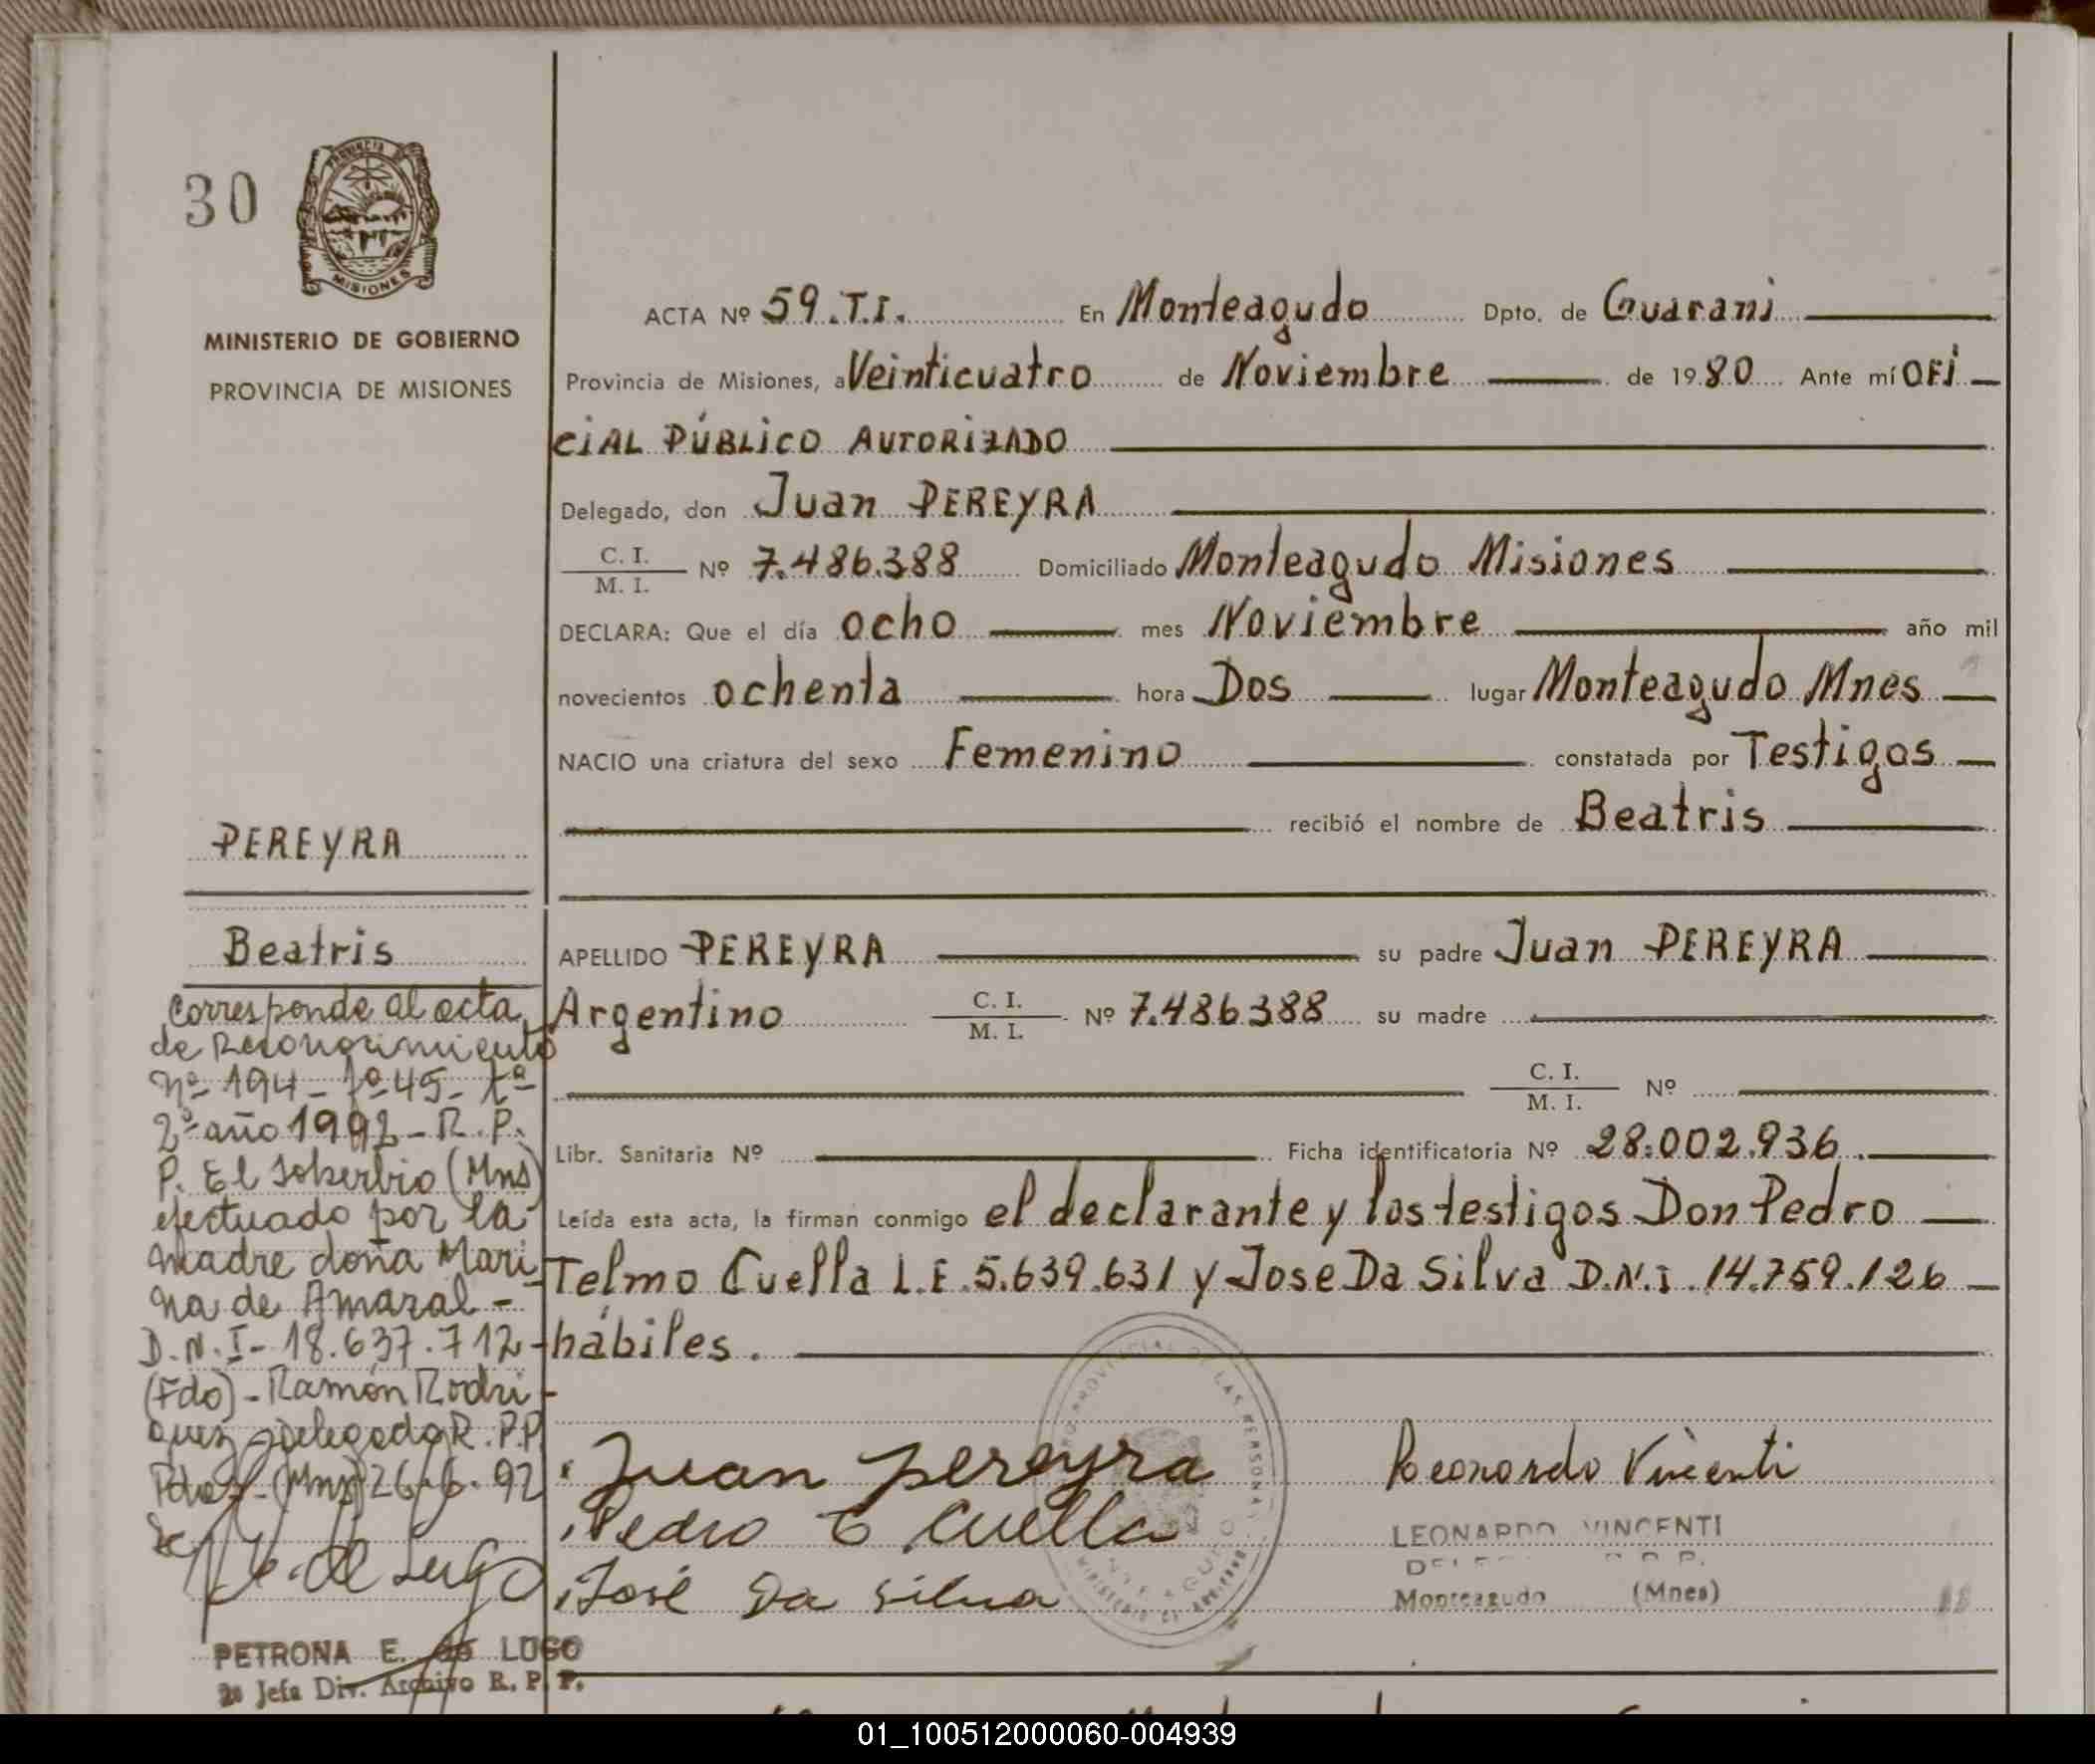 30
PROVINCIA DE
MISIONES
MINISTERIO DE GOBIERNO
PROVINCIA DE MISIONES
ACTA Nº 59.T.I. En Monteagudo Dpto. de Guarani
Provincia de Misiones, a Veinticuatro de Noviembre de 1980 Ante mí OFi
CiAL PÚBLiCO AUTORiZADO
Delegado, don Juan PEREYRA
C. I.
M. I.
Nº 7.486.388 Domiciliado Monteagudo Misiones
DECLARA: Que el día ocho mes Noviembre año mil
novecientos ochenta hora Dos lugar Monteagudo Mnes
NACIO una criatura del sexo Femenino constatada por Testigos
recibió el nombre de Beatris
APELLIDO PEREYRA su padre Juan PEREYRA
Argentino C. I. M. I. Nº 7.486388 su madre
C. I.
M. I.
Nº
Libr. Sanitaria Nº Ficha identificatoria Nº 28.002.936.
Leída esta acta, la firman conmigo el declarante y los testigos Don Pedro
Telmo Cuella L.E. 5.639.631 y Jose Da Silva D.N.I. 14.759.126
hábiles.
Juan pereyra
Pedro T Cuella
José Da Silva
Leonardo Vincenti
LEONARDO VINCENTI
R.P.P.
Monteagudo (Mnes)
PROVINCIAL DE LAS PERSONAS
MINISTERIO DE GOBIERNO
PEREYRA
Beatris
Corresponde al acta
de Reconocimiento
Nº 194 - Fº 45 - tº
2º año 1992 - R. P.
P. El Soberbio (Mns)
efectuado por la
madre doña Mari
na de Amaral -
D.N.I- 18.637.712-
(Fdo) - Ramón Rodri-
guez - delegado R.P.P.
Pdas - (Mns) 26-6-92
PETRONA E. de LUGO
2º Jefa Div. Archivo R. P. P.
01_100512000060-004939